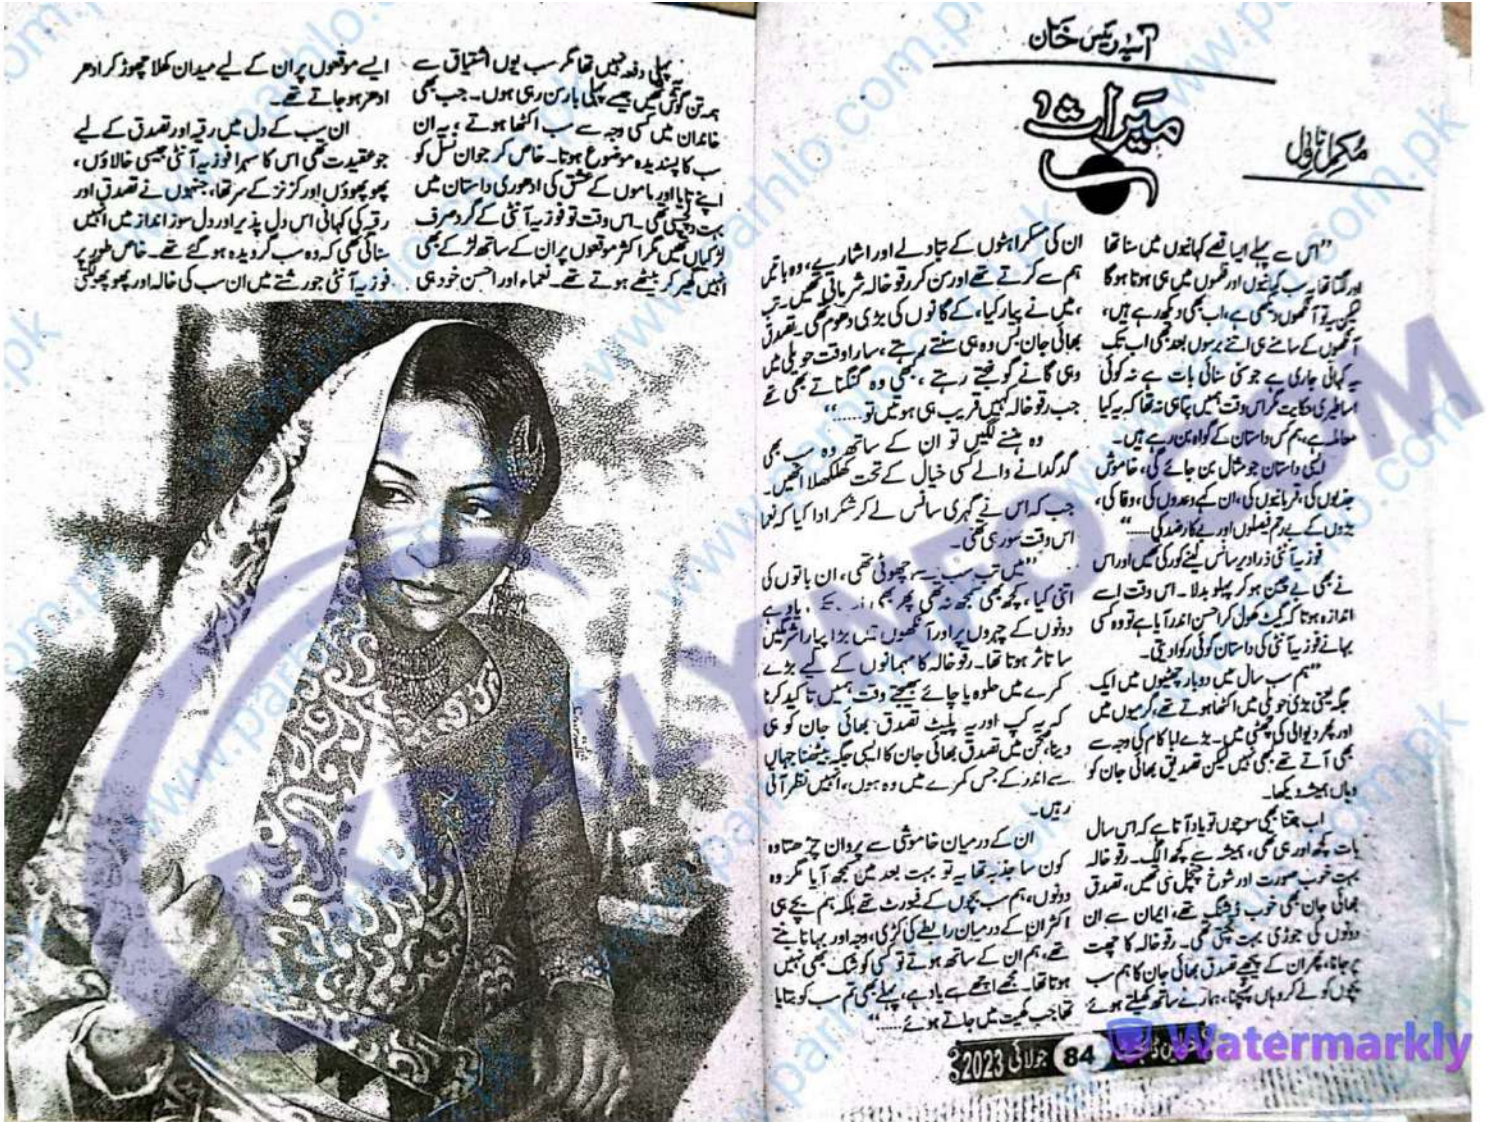 آسیہ رئیس خان
میراث
مکمل ناول
"اس سے پہلے ایسا قصے کہانیوں میں سنا تھا
اور لگتا تھا یہ سب کہانیوں اور فلموں میں ہی ہوتا ہوگا
لیکن یہ تو آنکھوں دیکھی ہے، اب بھی دیکھ رہے ہیں،
آنکھوں کے سامنے ہی اتنے برسوں بعد بھی اب تک
یہ کہانی جاری ہے جو سنی سنائی بات ہے نہ کوئی
اساطیری حکایت مگر اس وقت ہمیں پتا ہی نہ تھا کہ یہ کیا
معاملہ ہے، ہم کس داستان کے گواہ بن رہے ہیں۔
ایسی داستان جو مثال بن جائے گی، خاموش
جذبوں کی، قربانیوں کی، ان کہے وعدوں کی، وفا کی،
بڑوں کے بے رحم فیصلوں اور بے کار ضد کی......"
فوزیہ آنٹی ذرا دیر سانس لینے کو رکی تھیں اور اس
نے بھی بے چین ہو کر پہلو بدلا۔ اس وقت اسے
اندازہ ہوتا کہ گیٹ کھول کر احسن اندر آیا ہے تو وہ کسی
بہانے فوزیہ آنٹی کی داستان گوئی رکوا دیتی۔
"ہم سب سال میں دو بار چھٹیوں میں ایک
جگہ یعنی بڑی حویلی میں اکٹھا ہوتے تھے، گرمیوں میں
اور پھر دیوالی کی چھٹی میں۔ بڑے ابا کام کی وجہ سے
بھی آتے تھے کبھی نہیں لیکن تصدق بھائی جان کو
وہاں ہمیشہ دیکھا۔
اب جتنا بھی سوچوں تو یاد آتا ہے کہ اس سال
بات کچھ اور ہی تھی، ہمیشہ سے کچھ الگ۔ رقو خالہ
بہت خوب صورت اور شوخ چنچل سی تھیں، تصدق
بھائی جان بھی خوب ڈیشنگ تھے، ایمان سے ان
دونوں کی جوڑی بہت جچتی تھی۔ رقو خالہ کا چھت
پر جانا، پھر ان کے پیچھے تصدق بھائی جان کا ہم سب
بچوں کو لے کر وہاں پہنچنا، ہمارے ساتھ کھیلتے ہوئے
ان کی مسکراہٹوں کے تبادلے اور اشارے، وہ باتیں
ہم سے کرتے تھے اور سن کر رقو خالہ شرماتی تھیں۔ تب
'میں نے پیار کیا' کے گانوں کی بڑی دھوم تھی۔ تصدق
بھائی جان بس وہ ہی سنتے رہتے، سارا وقت حویلی میں
وہی گانے گونجتے رہتے، کبھی وہ گنگناتے بھی تھے
جب رقو خالہ کہیں قریب ہی ہوتیں تو......"
وہ ہنسنے لگیں تو ان کے ساتھ وہ سب بھی
گدگدانے والے کسی خیال کے تحت کھلکھلا اٹھیں۔
جب کہ اس نے گہری سانس لے کر شکر ادا کیا کہ نعما
اس وقت سو رہی تھی۔
"میں تب سب سے چھوٹی تھی، ان باتوں کی
اتنی کیا، کچھ بھی سمجھ نہ تھی پھر بھی یاد ہے
دونوں کے چہروں پر اور آنکھوں میں بڑا پیارا شرمگیں
سا تاثر ہوتا تھا۔ رقو خالہ کا مہمانوں کے لیے بڑے
کمرے میں حلوہ یا چائے بھیجتے وقت ہمیں تاکید کرنا
کہ یہ کپ اور یہ پلیٹ تصدق بھائی جان کو ہی
دینا، صحن میں تصدق بھائی جان کا ایسی جگہ بیٹھنا جہاں
سے اندر کے جس کمرے میں وہ ہوں، انہیں نظر آتی
رہیں۔
ان کے درمیان خاموشی سے پروان چڑھتا وہ
کون سا جذبہ تھا یہ تو بہت بعد میں سمجھ آیا مگر وہ
دونوں، ہم سب بچوں کے فیورٹ تھے بلکہ ہم بچے ہی
اکثر ان کے درمیان رابطے کی کڑی، وجہ اور بہانا بنتے
تھے، ہم ان کے ساتھ ہوتے تو کسی کو شک بھی نہیں
ہوتا تھا۔ مجھے اچھے سے یاد ہے، پہلے بھی تم سب کو بتایا
تھا جب کھیت میں جاتے ہوئے......"
84 جولائی 2023
Watermarkly
پہلی دفعہ نہیں تھا مگر سب یوں اشتیاق سے
ہمہ تن گوش تھیں جیسے پہلی بار سن رہی ہوں۔ جب بھی
خاندان میں کسی وجہ سے سب اکٹھا ہوتے، یہ ان
سب کا پسندیدہ موضوع ہوتا۔ خاص کر جوان نسل کو
اپنے تایا اور ماموں کے عشق کی ادھوری داستان میں
بہت دلچسپی تھی۔ اس وقت تو فوزیہ آنٹی کے گرد صرف
لڑکیاں تھیں مگر اکثر موقعوں پر ان کے ساتھ لڑکے بھی
انہیں گھیر کر بیٹھے ہوتے تھے۔ نعماء اور احسن خود ہی
ایسے موقعوں پر ان کے لیے میدان کھلا چھوڑ کر ادھر
ادھر ہو جاتے تھے۔
ان سب کے دل میں رقیہ اور تصدق کے لیے
جو عقیدت تھی اس کا سہرا فوزیہ آنٹی جیسی خالاؤں،
پھوپھوؤں اور کزنز کے سر تھا، جنہوں نے تصدق اور
رقیہ کی کہانی اس دل پذیر اور دل سوز انداز میں انہیں
سنائی تھی کہ وہ سب گرویدہ ہو گئے تھے۔ خاص طور پر
فوزیہ آنٹی جو رشتے میں ان سب کی خالہ اور پھوپھو لگتی
www.parhlo.com.pk